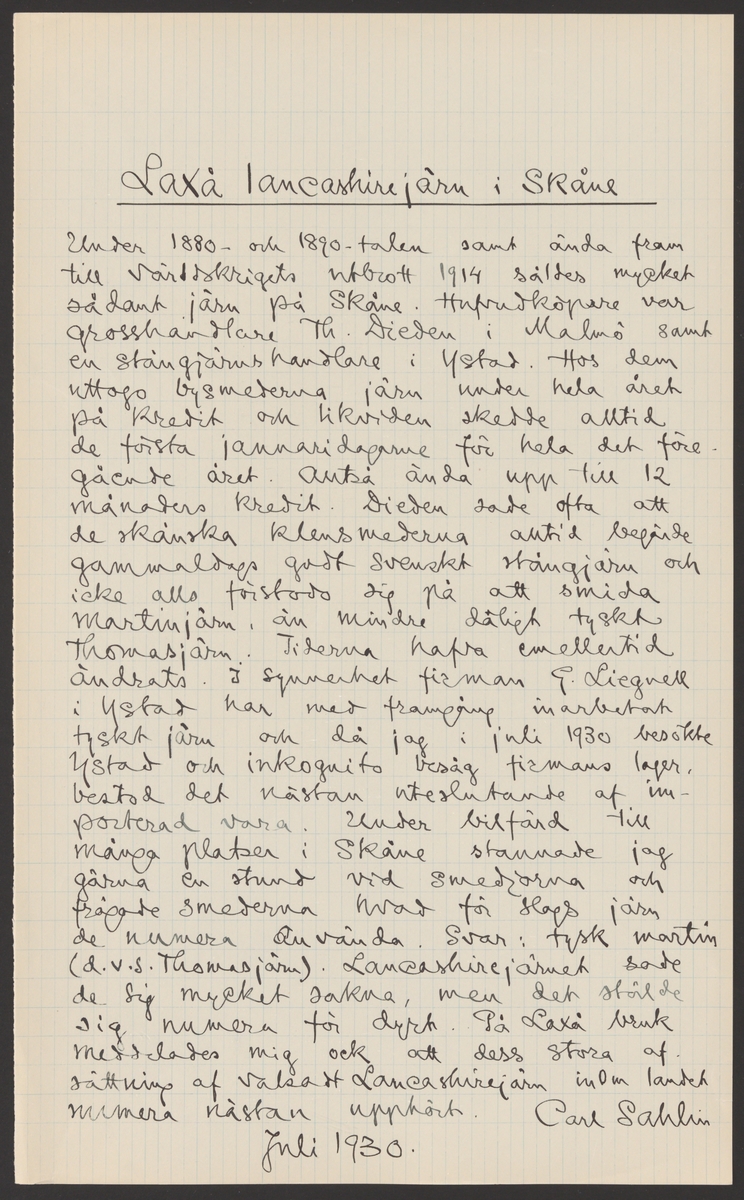 Laxå lancashirejärn i Skåne
Under 1880- och 1890-talen samt ända fram
till världskrigets utbrott 1914 såldes mycket
sådant järn på Skåne. Hufvudköpare var
grosshandlare Th. Dieden i Malmö samt
en stångjärnshandlare i Ystad. Hos dem
uttogo bysmederna järn under hela året
på kredit och likviden skedde alltid
de första januaridagarne för hela det före-
gående året. Alltså ända upp till 12
månaders kredit. Dieden sade ofta att
de skånska klensmederna alltid begärde
gammaldags godt svenskt stångjärn och
icke alls förstodo sig på att smida
martinjärn, än mindre dåligt tyskt
Thomasjärn. Tiderna hafva emellertid
ändrats. I synnerhet firman G. Liegnell
i Ystad har med framgång inarbetat
tyskt järn och då jag i juli 1930 besökte
Ystad och inkognito besåg firmans lager,
bestod det nästan uteslutande af im-
porterad vara. Under bilfärd till
många platser i Skåne stannade jag
gärna en stund vid smedjorna och
frågade smederna hvad för slags järn
de numera använda. Svar: tysk martin
(d.v.s. Thomasjärn). Lancashirejärnet sade
de sig mycket sakna, men det stälde
sig numera för dyrt. På Laxå bruk
meddelades mig ock att dess stora af-
sättning af valsadt Lancashirejärn inom landet
numera nästan upphört. Carl Sahlin
Juli 1930.